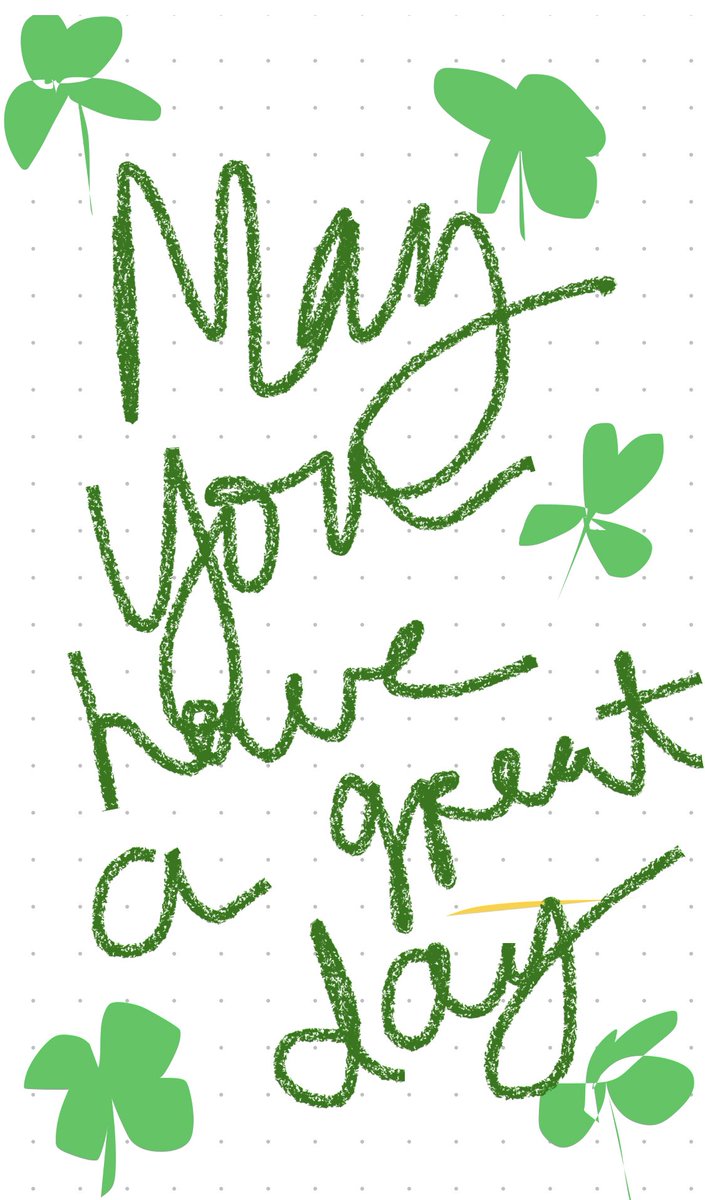 May
you
have
a great
day